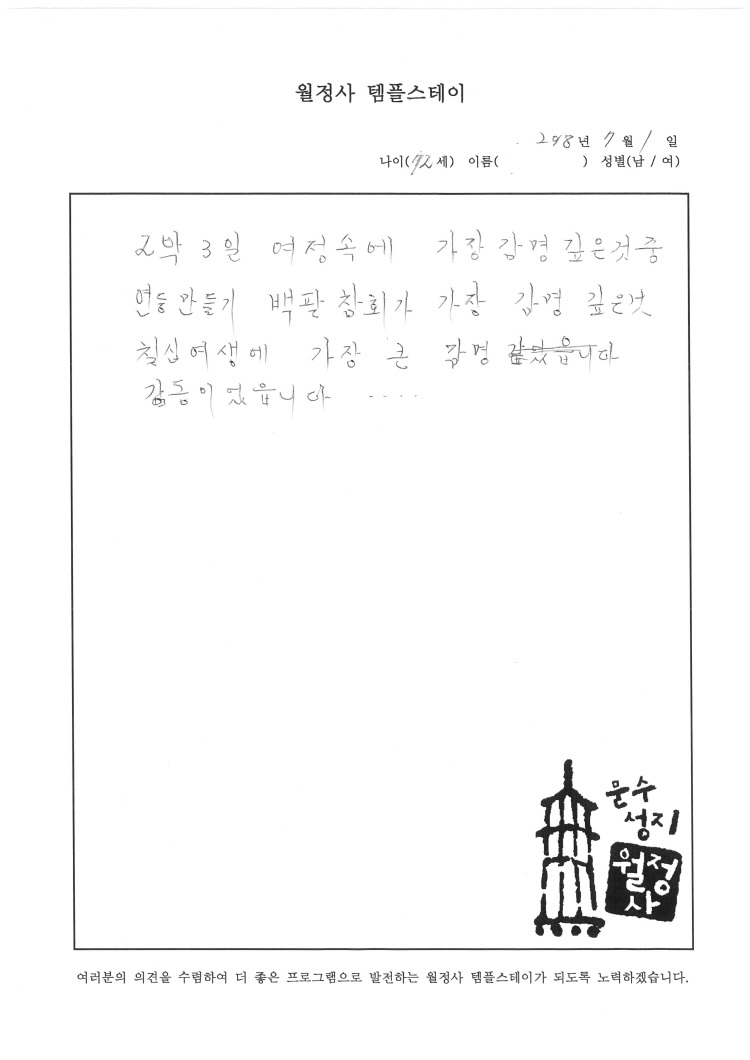 월정사 템플스테이
298년 7월 1일
나이(72세) 이름( ) 성별(남 / 여)
2박 3일 여정속에 가장 감명 깊은것중
연등만들기 백팔참회가 가장 감명 깊은것
칠십여생에 가장 큰 감명
감동이었읍니다 ....
문수
성지
월정
사
여러분의 의견을 수렴하여 더 좋은 프로그램으로 발전하는 월정사 템플스테이가 되도록 노력하겠습니다.